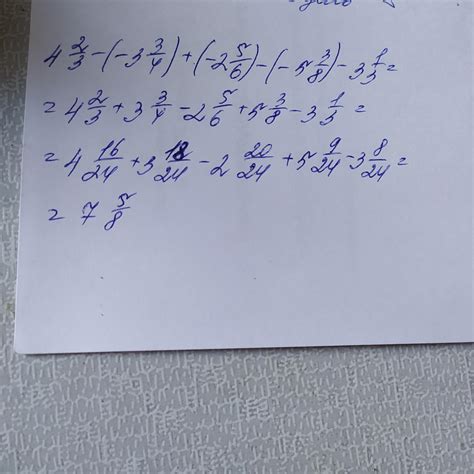 4 2/3 - (-3 3/4) + (-2 5/6) - (-5 3/8) - 3 1/3 =
= 4 2/3 + 3 3/4 - 2 5/6 + 5 3/8 - 3 1/3 =
= 4 16/24 + 3 18/24 - 2 20/24 + 5 9/24 - 3 8/24 =
= 7 5/8